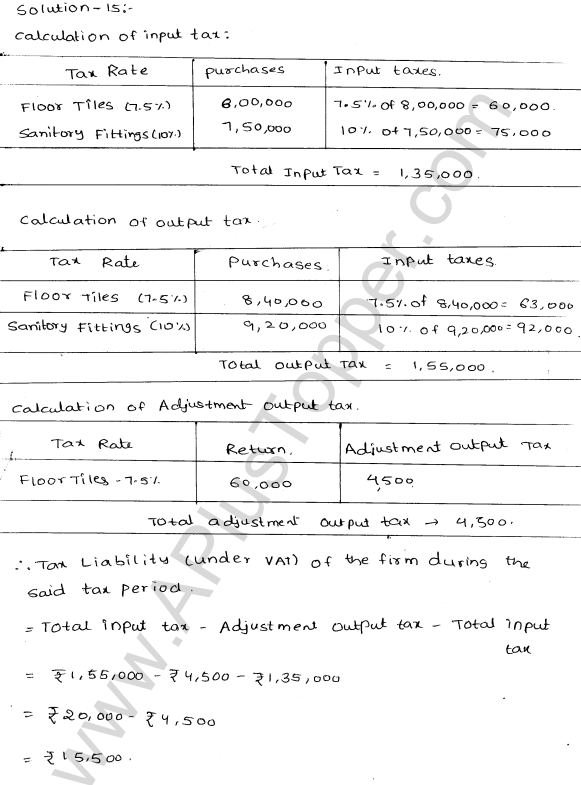 Solution-15:-
Calculation of input tax:
Tax Rate purchases Input taxes.
Floor Tiles (7.5%) 8,00,000 7.5% of 8,00,000 = 60,000.
Sanitory Fittings (10%) 7,50,000 10% of 7,50,000 = 75,000
Total Input Tax = 1,35,000.
Calculation of output tax.
Tax Rate Purchases. Input taxes.
Floor Tiles (7.5%) 8,40,000 7.5% of 8,40,000 = 63,000
Sanitory Fittings (10%) 9,20,000 10% of 9,20,000 = 92,000.
Total output Tax = 1,55,000.
Calculation of Adjustment output tax.
Tax Rate Return. Adjustment output Tax
Floor Tiles - 7.5% 60,000 4,500
Total adjustment output tax → 4,500.
∴ Tax Liability (under VAT) of the firm during the
said tax period.
= Total input tax - Adjustment output tax - Total input
tax
= ₹1,55,000 - ₹4,500 - ₹1,35,000
= ₹20,000 - ₹4,500
= ₹15,500.
www.APlusTopper.com